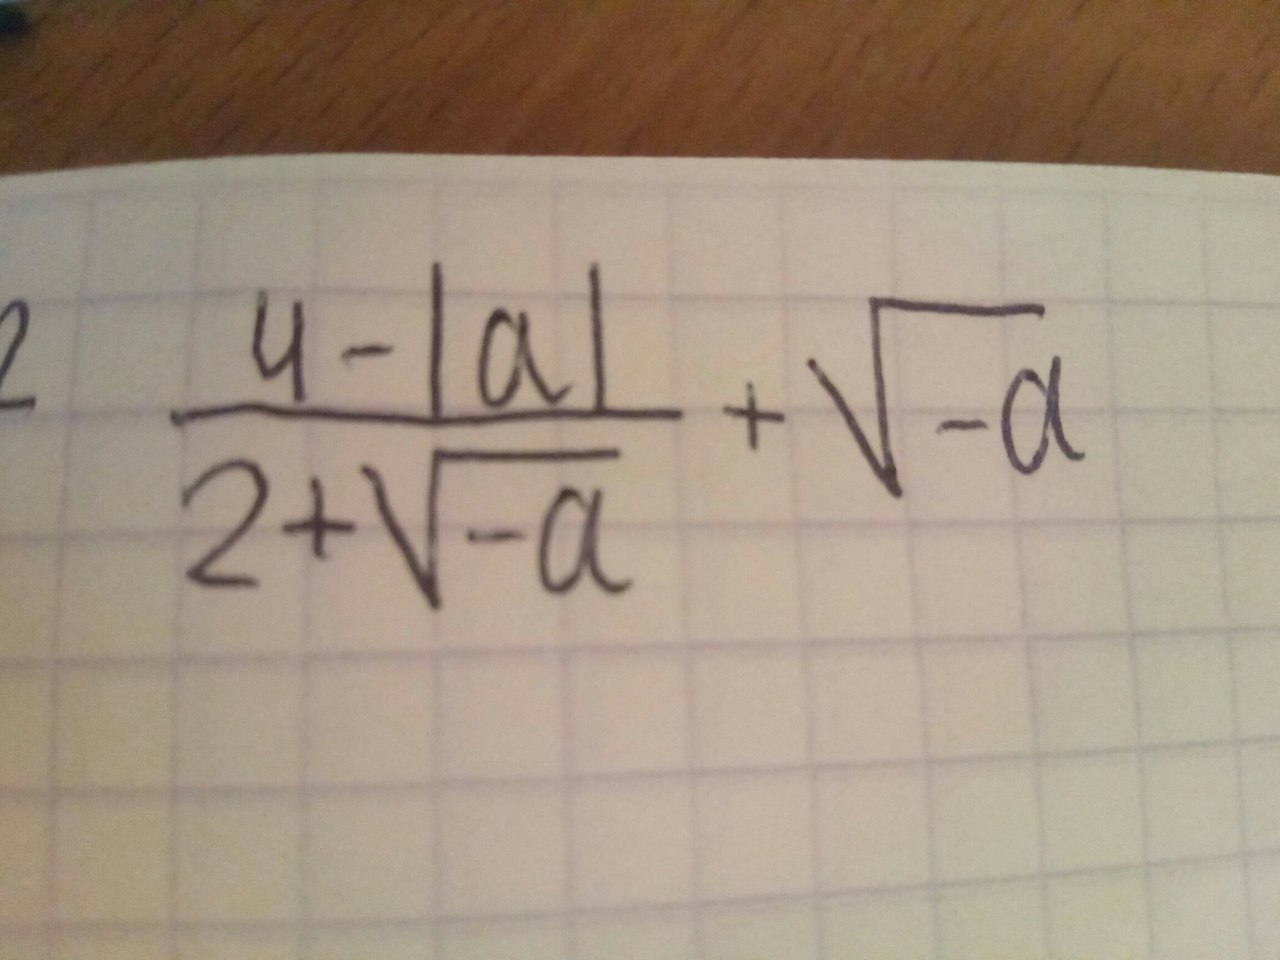 2 (4-|a|)/(2+√-a) + √-a